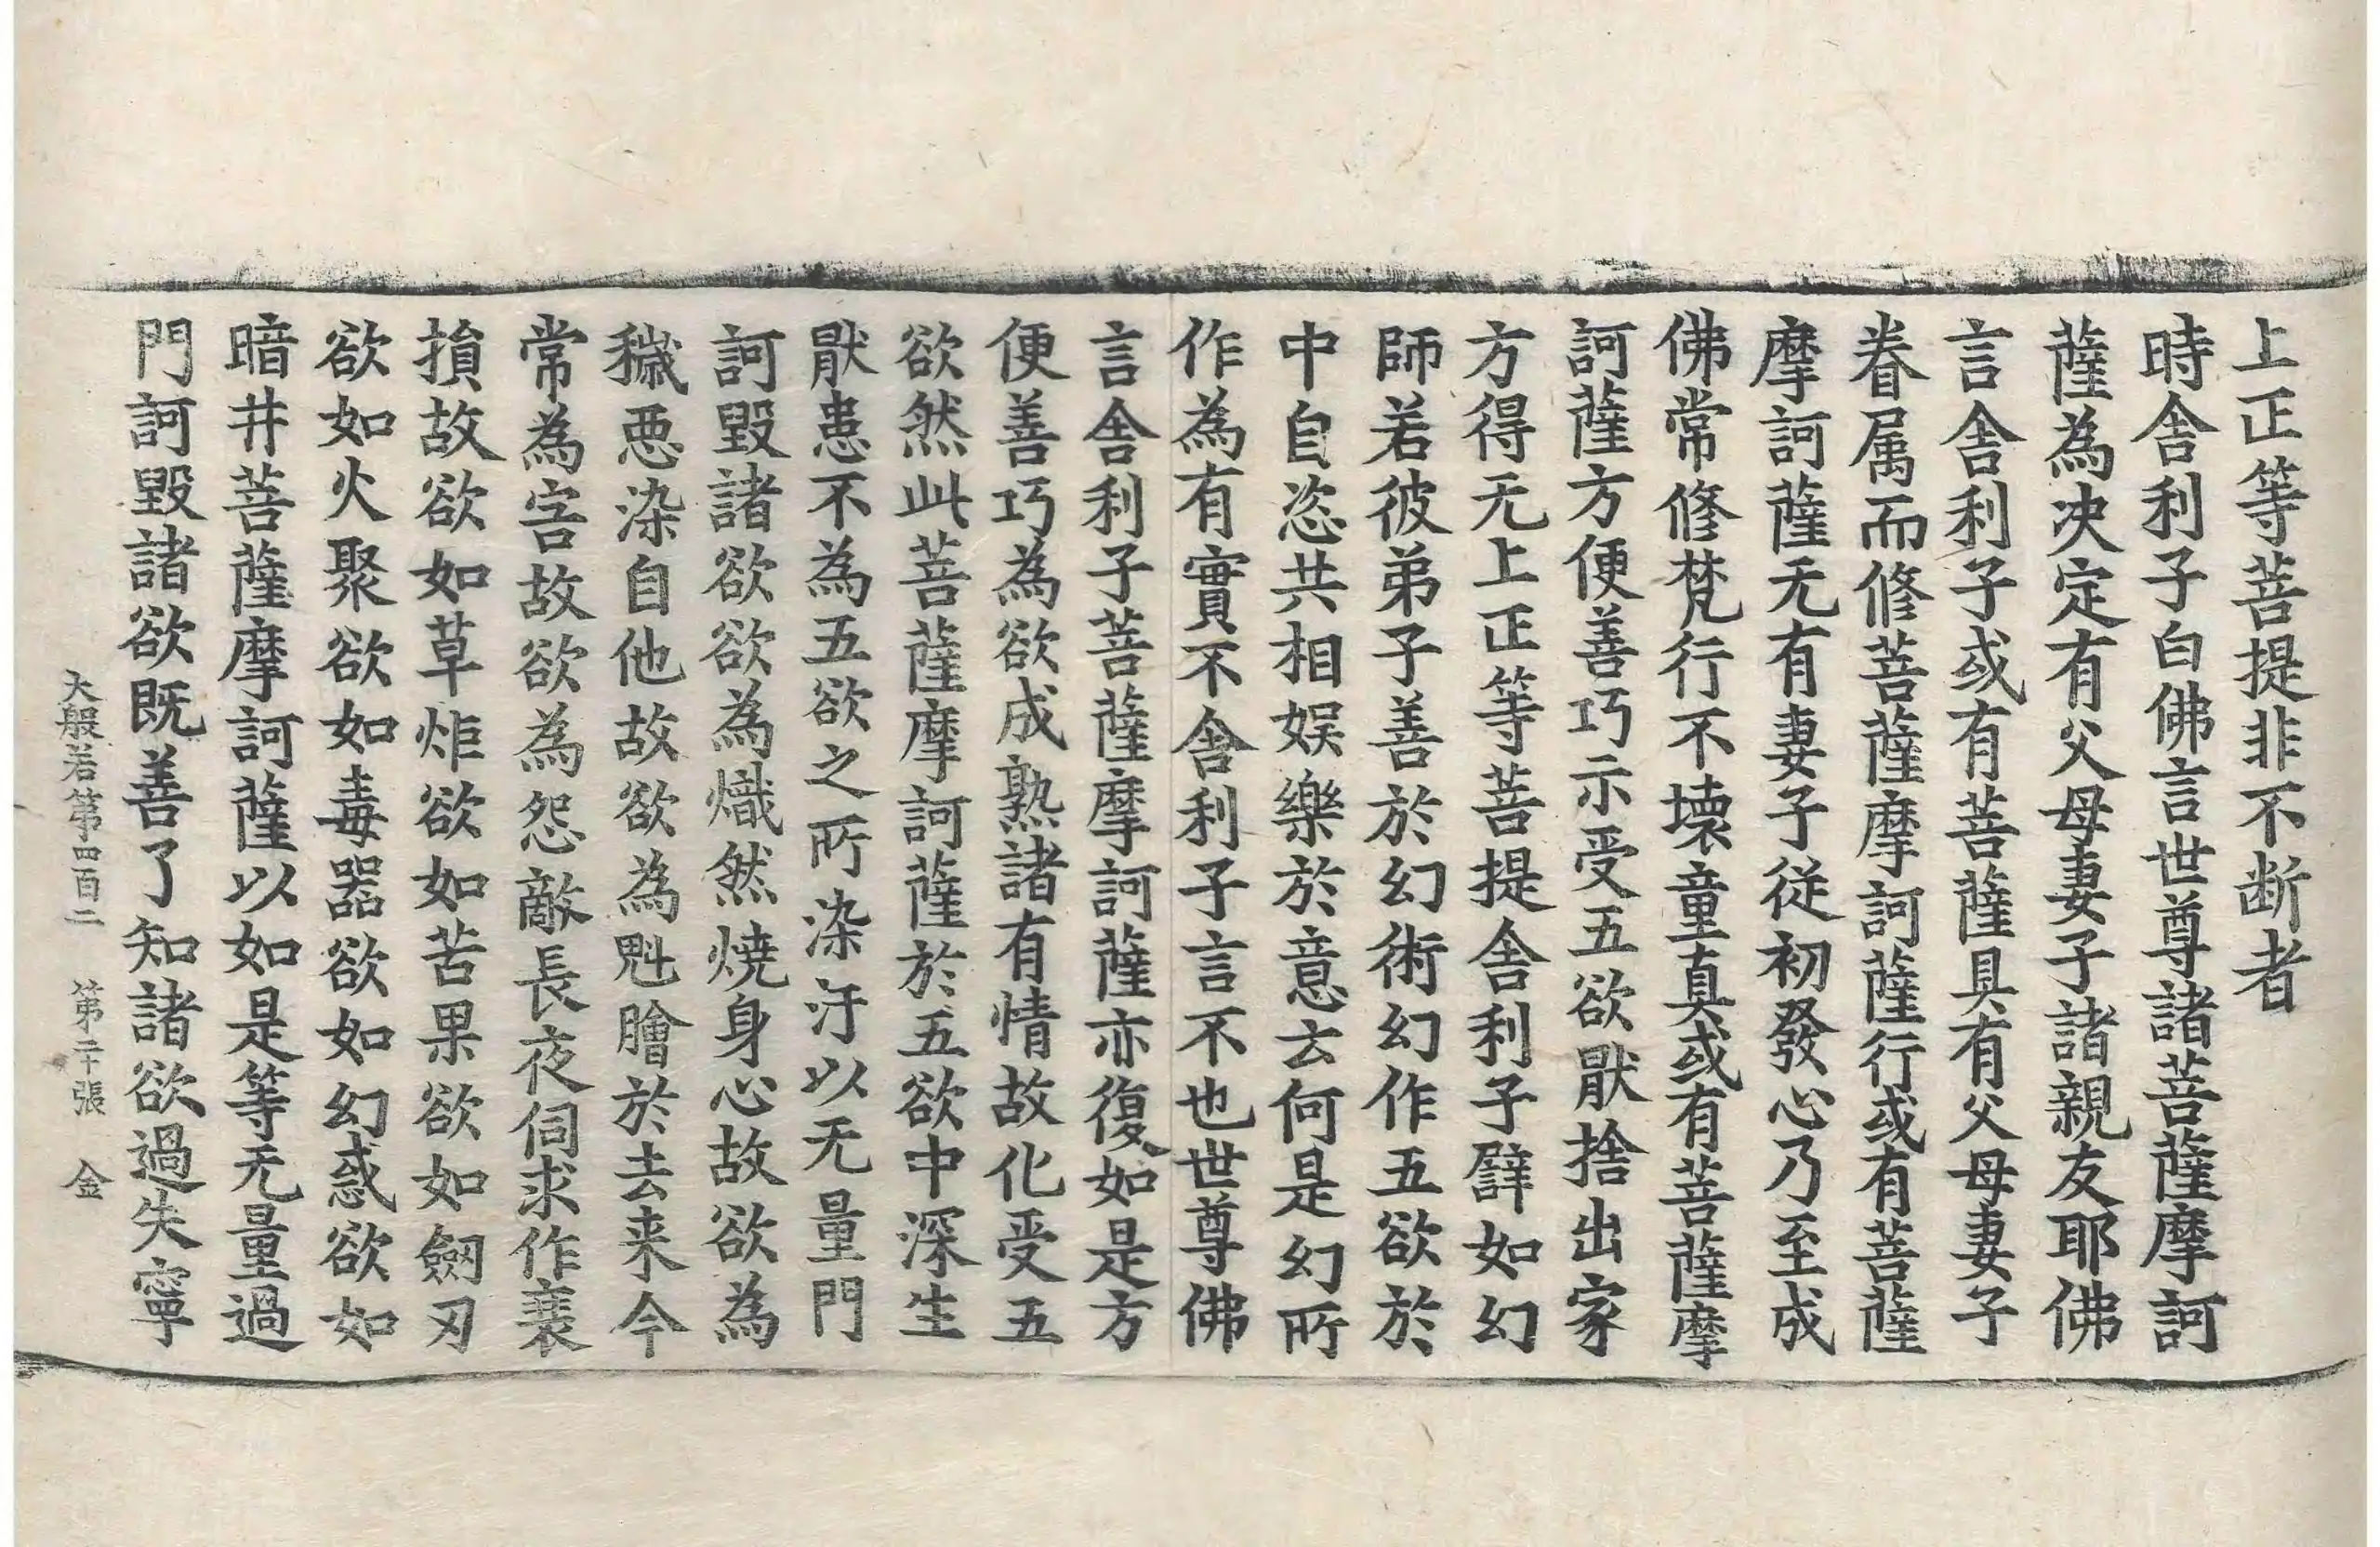 上正等菩提非不断者
時舎利子白佛言世尊諸菩薩摩訶
薩為决定有父母妻子諸親友耶佛
言舎利子或有菩薩具有父母妻子
眷属而修菩薩摩訶薩行或有菩薩
摩訶薩无有妻子従初發心乃至成
佛常修梵行不壊童真或有菩薩摩
訶薩方便善巧示受五欲厭捨出家
方得无上正等菩提舎利子譬如幻
師若彼弟子善於幻術幻作五欲於
中自恣共相娯樂於意云何是幻所
作為有實不舎利子言不也世尊佛
言舎利子菩薩摩訶薩亦復如是方
便善巧為欲成熟諸有情故化受五
欲然此菩薩摩訶薩於五欲中深生
厭患不為五欲之所染汙以无量門
訶毀諸欲欲為熾然焼身心故欲為
穢惡染自他故欲為魁膾於去来今
常為害故欲為怨敵長夜伺求作衰
損故欲如草炬欲如苦果欲如劒刃
欲如火聚欲如毒器欲如幻惑欲如
暗井菩薩摩訶薩以如是等无量過
門訶毀諸欲既善了知諸欲過失寧
大般若第四百二 第二十張 金